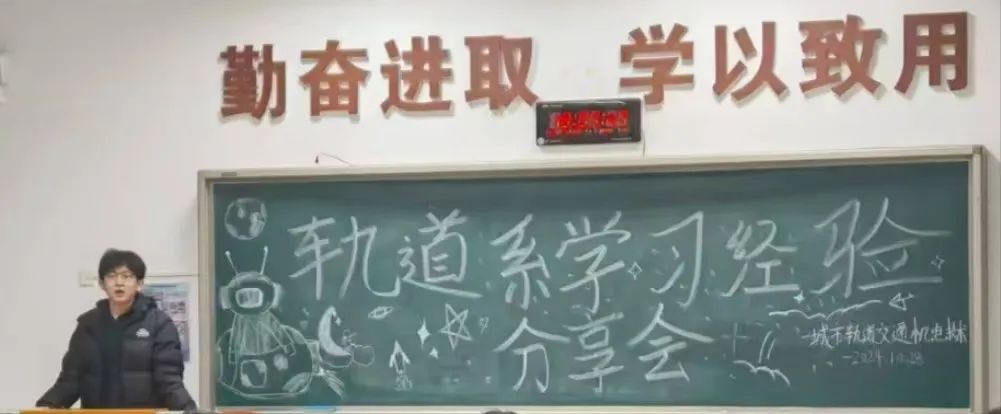 勤奋进取 学以致用
轨道系学习经验
分享会
城市轨道交通机电技术
-2024.10.28